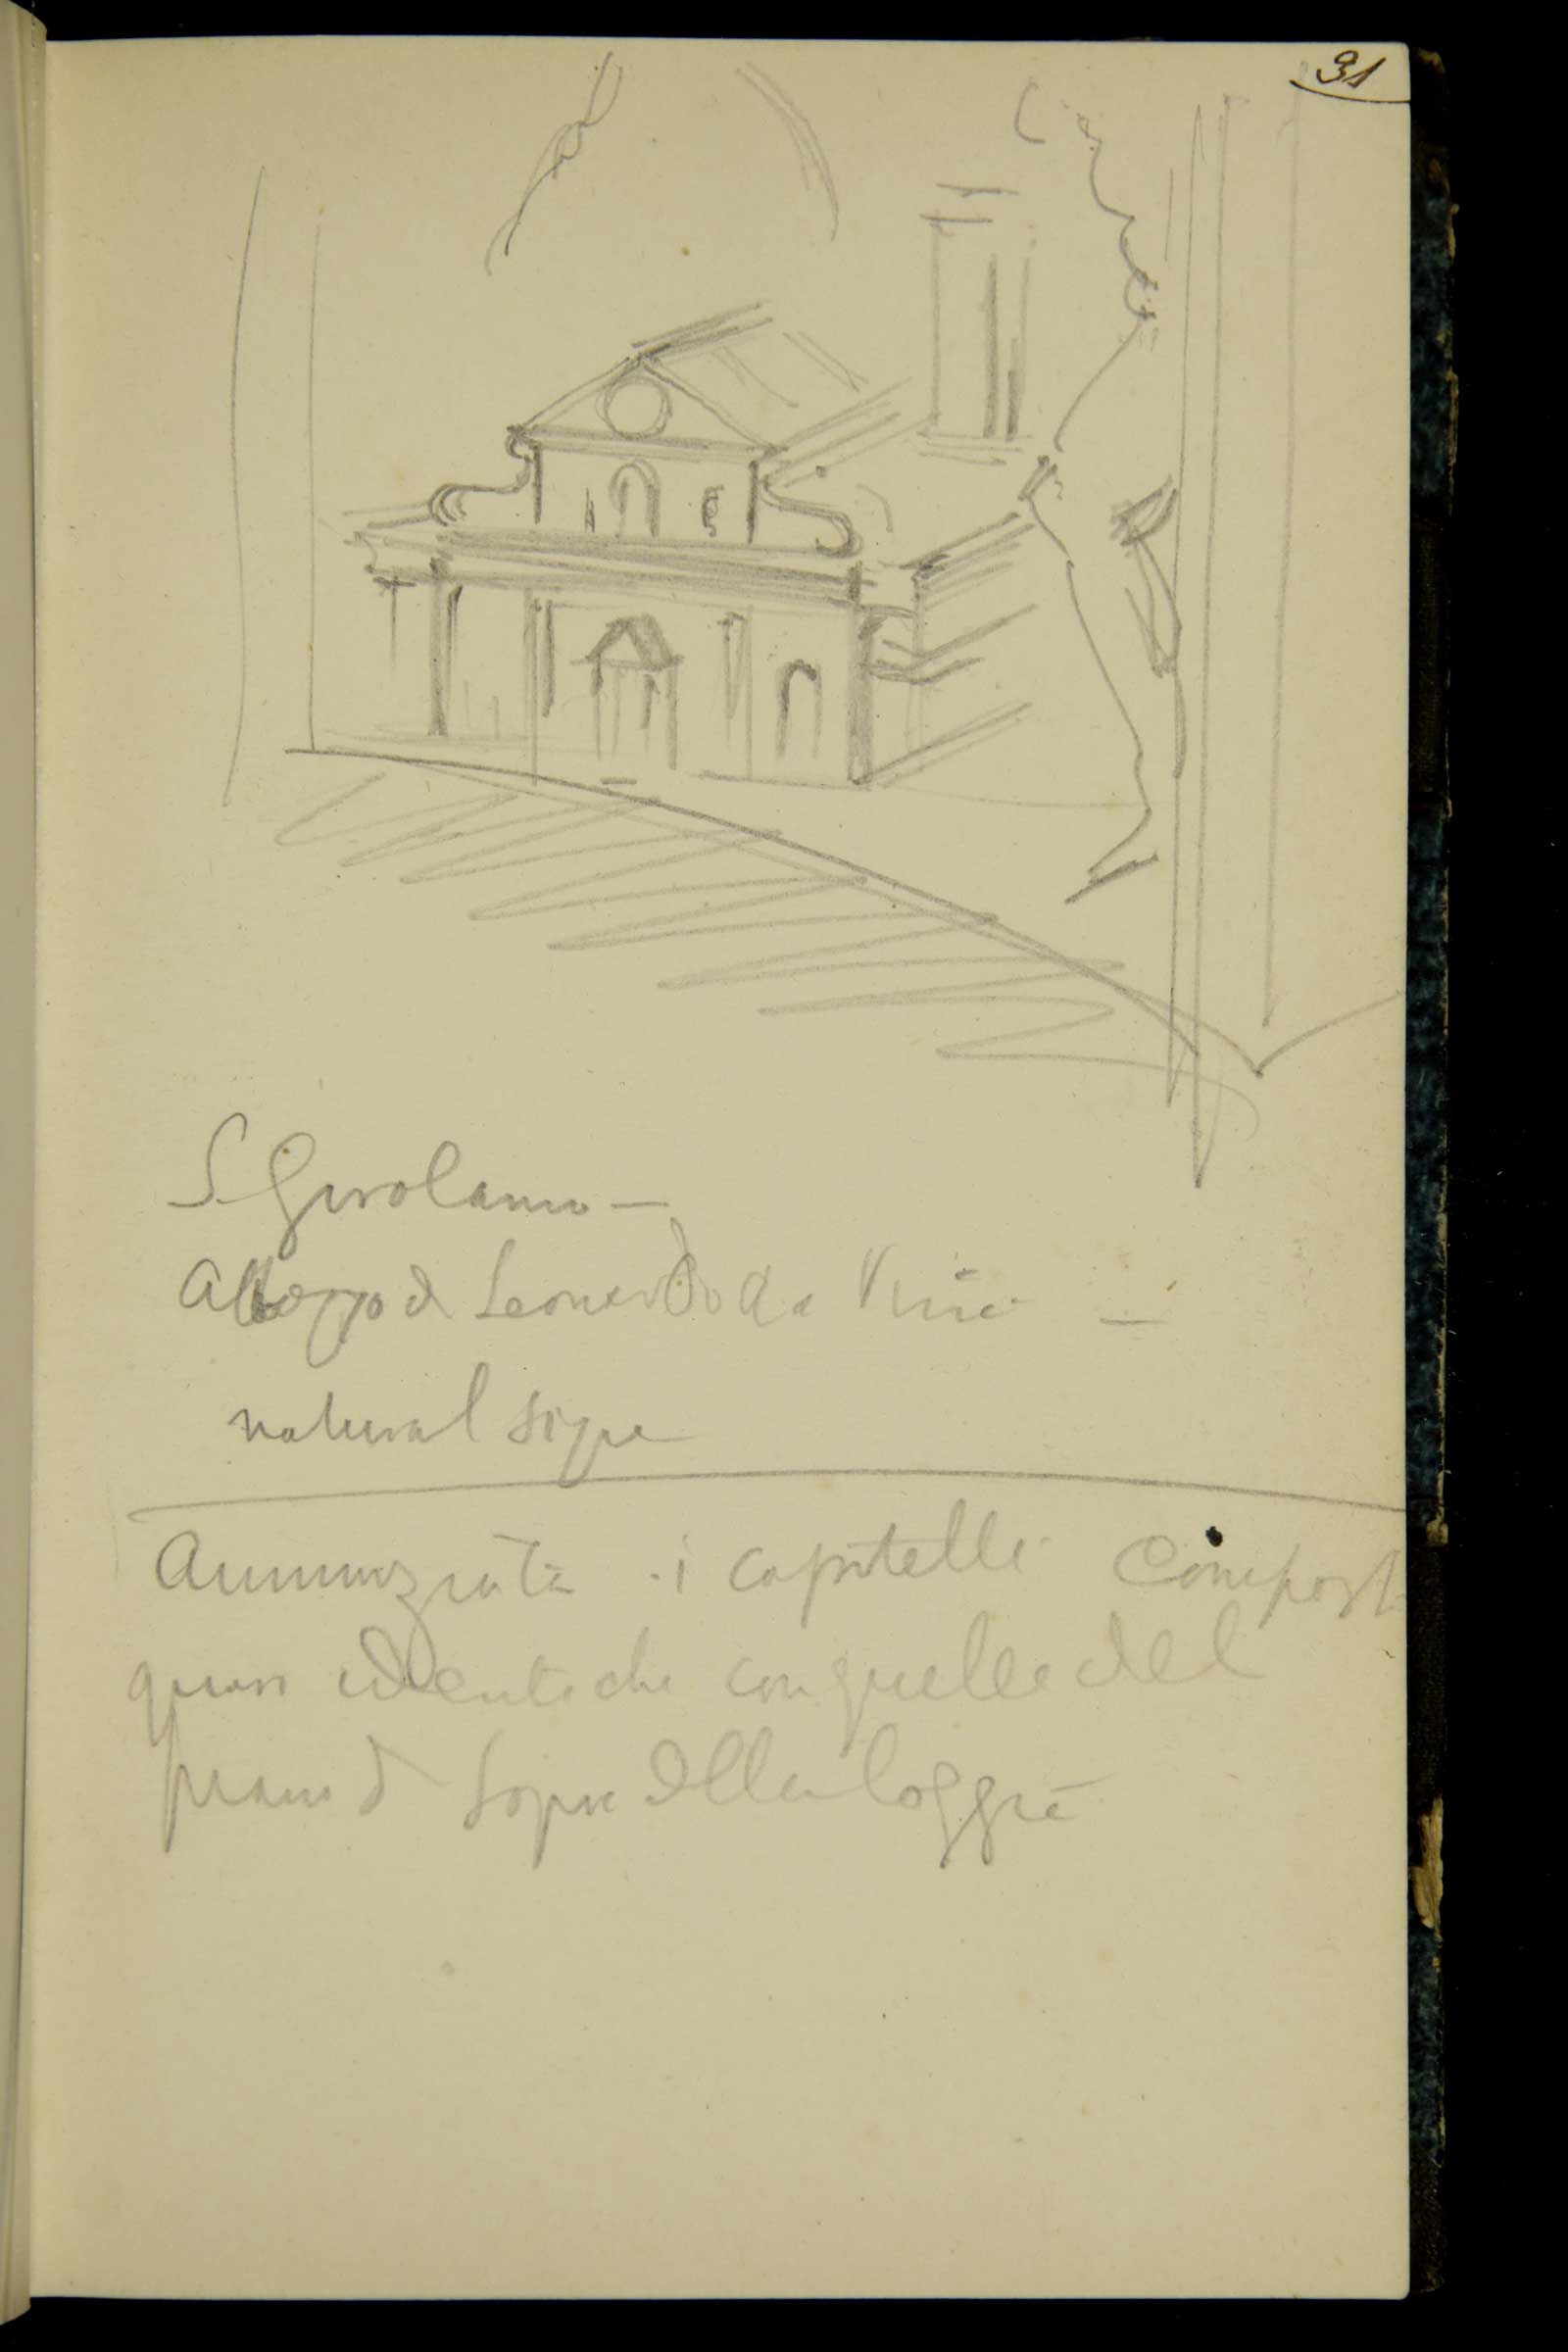 31
S. Girolamo —
Abbozzo di Leonardo da Vinci —
natural size
Annunziata . i capitelli Compost
quasi identiche con quelle del
piano di sopra della loggia